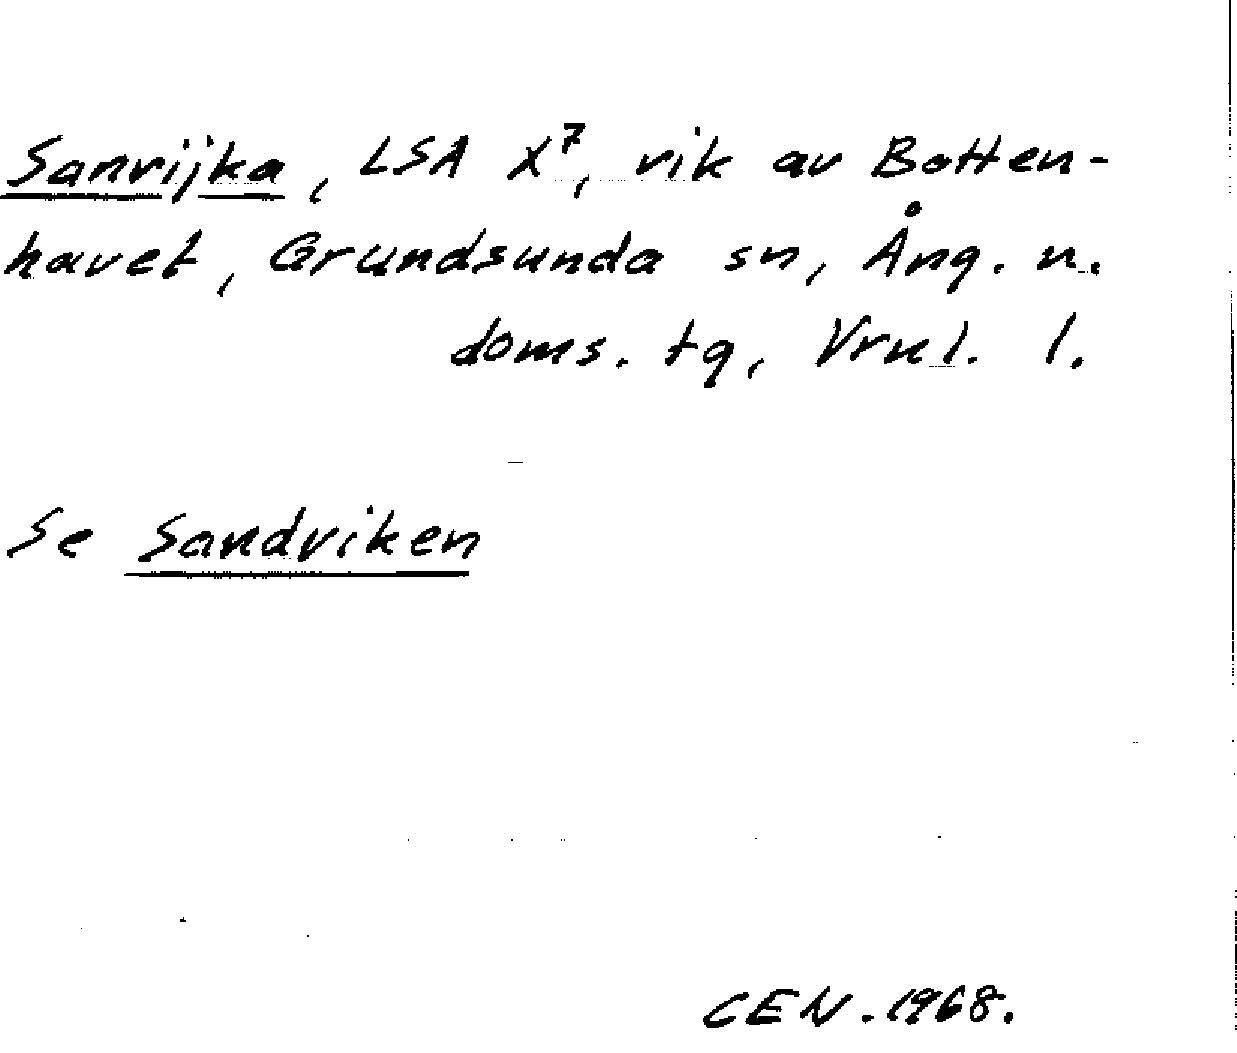 Sanvijka, LSA X⁷, vik av Botten-
havet, Grundsunda sn, Ång. n.
doms. tg, Vrnl. l.
Se Sandviken
CEN. 1968.